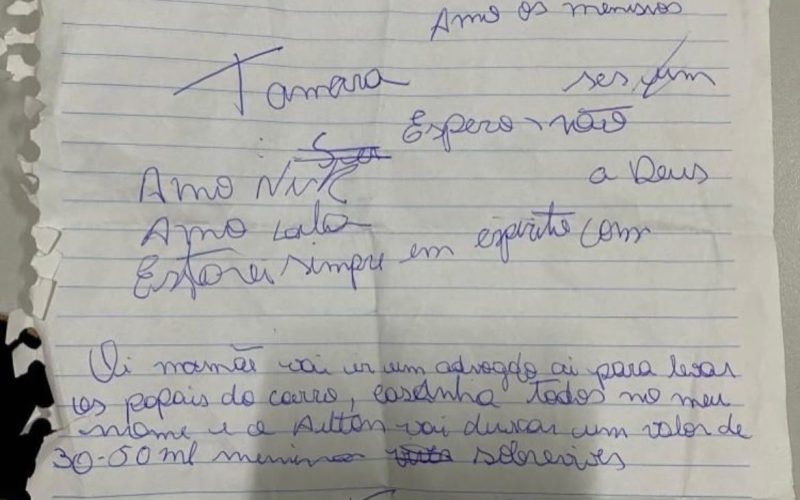 Amo os meninos
Tamara ser um
Espero não
Amo a Deus
Amo
Estarei sempre em espirito com
Oi mamãe vai ir um advogdo ai para levar
os papais do carro, casinha todos no meu
nome e o Ailton vai deixar um valor de
30-50 ml sobrevives